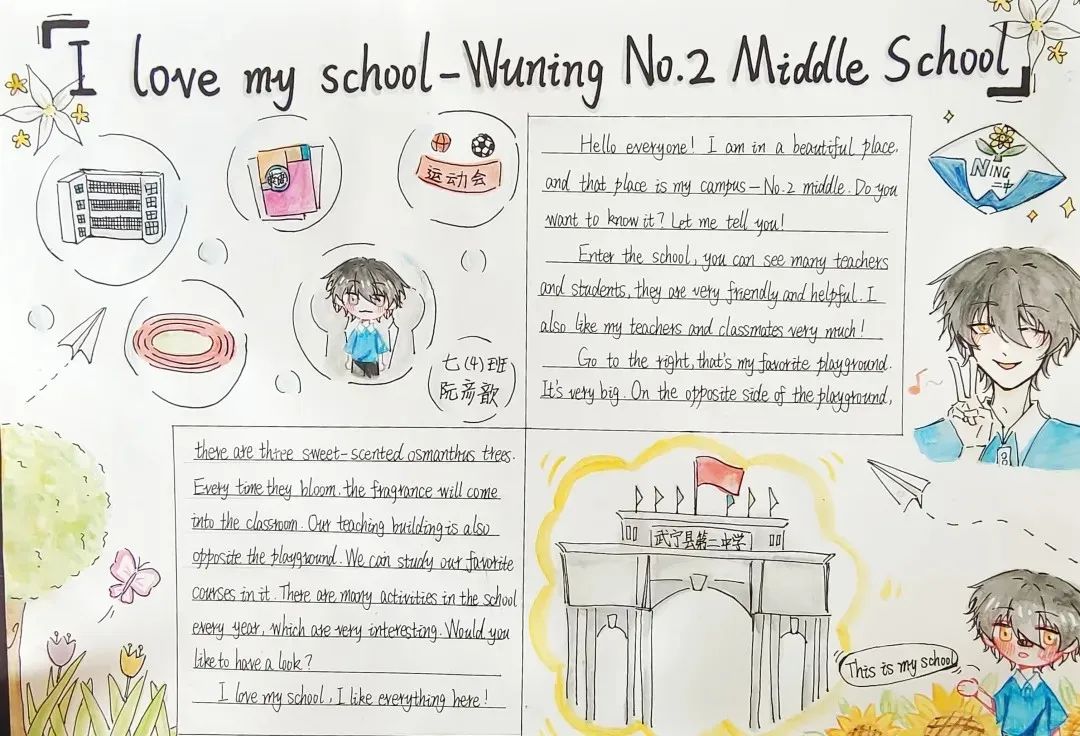 I love my school-Wuning No.2 Middle School
运动会
七(4)班
阮彦歆
Hello everyone! I am in a beautiful place,
and that place is my campus-No.2 middle. Do you
want to know it? Let me tell you!
Enter the school, you can see many teachers
and students, they are very friendly and helpful. I
also like my teachers and classmates very much!
Go to the right, that's my favorite playground.
It's very big. On the opposite side of the playground,
there are three sweet-scented osmanthus trees.
Every time they bloom, the fragrance will come
into the classroom. Our teaching building is also
opposite the playground. We can study our favorite
courses in it. There are many activities in the school
every year, which are very interesting. Would you
like to have a look?
I love my school, I like everything here!
NING
二中
武宁县第二中学
This is my school